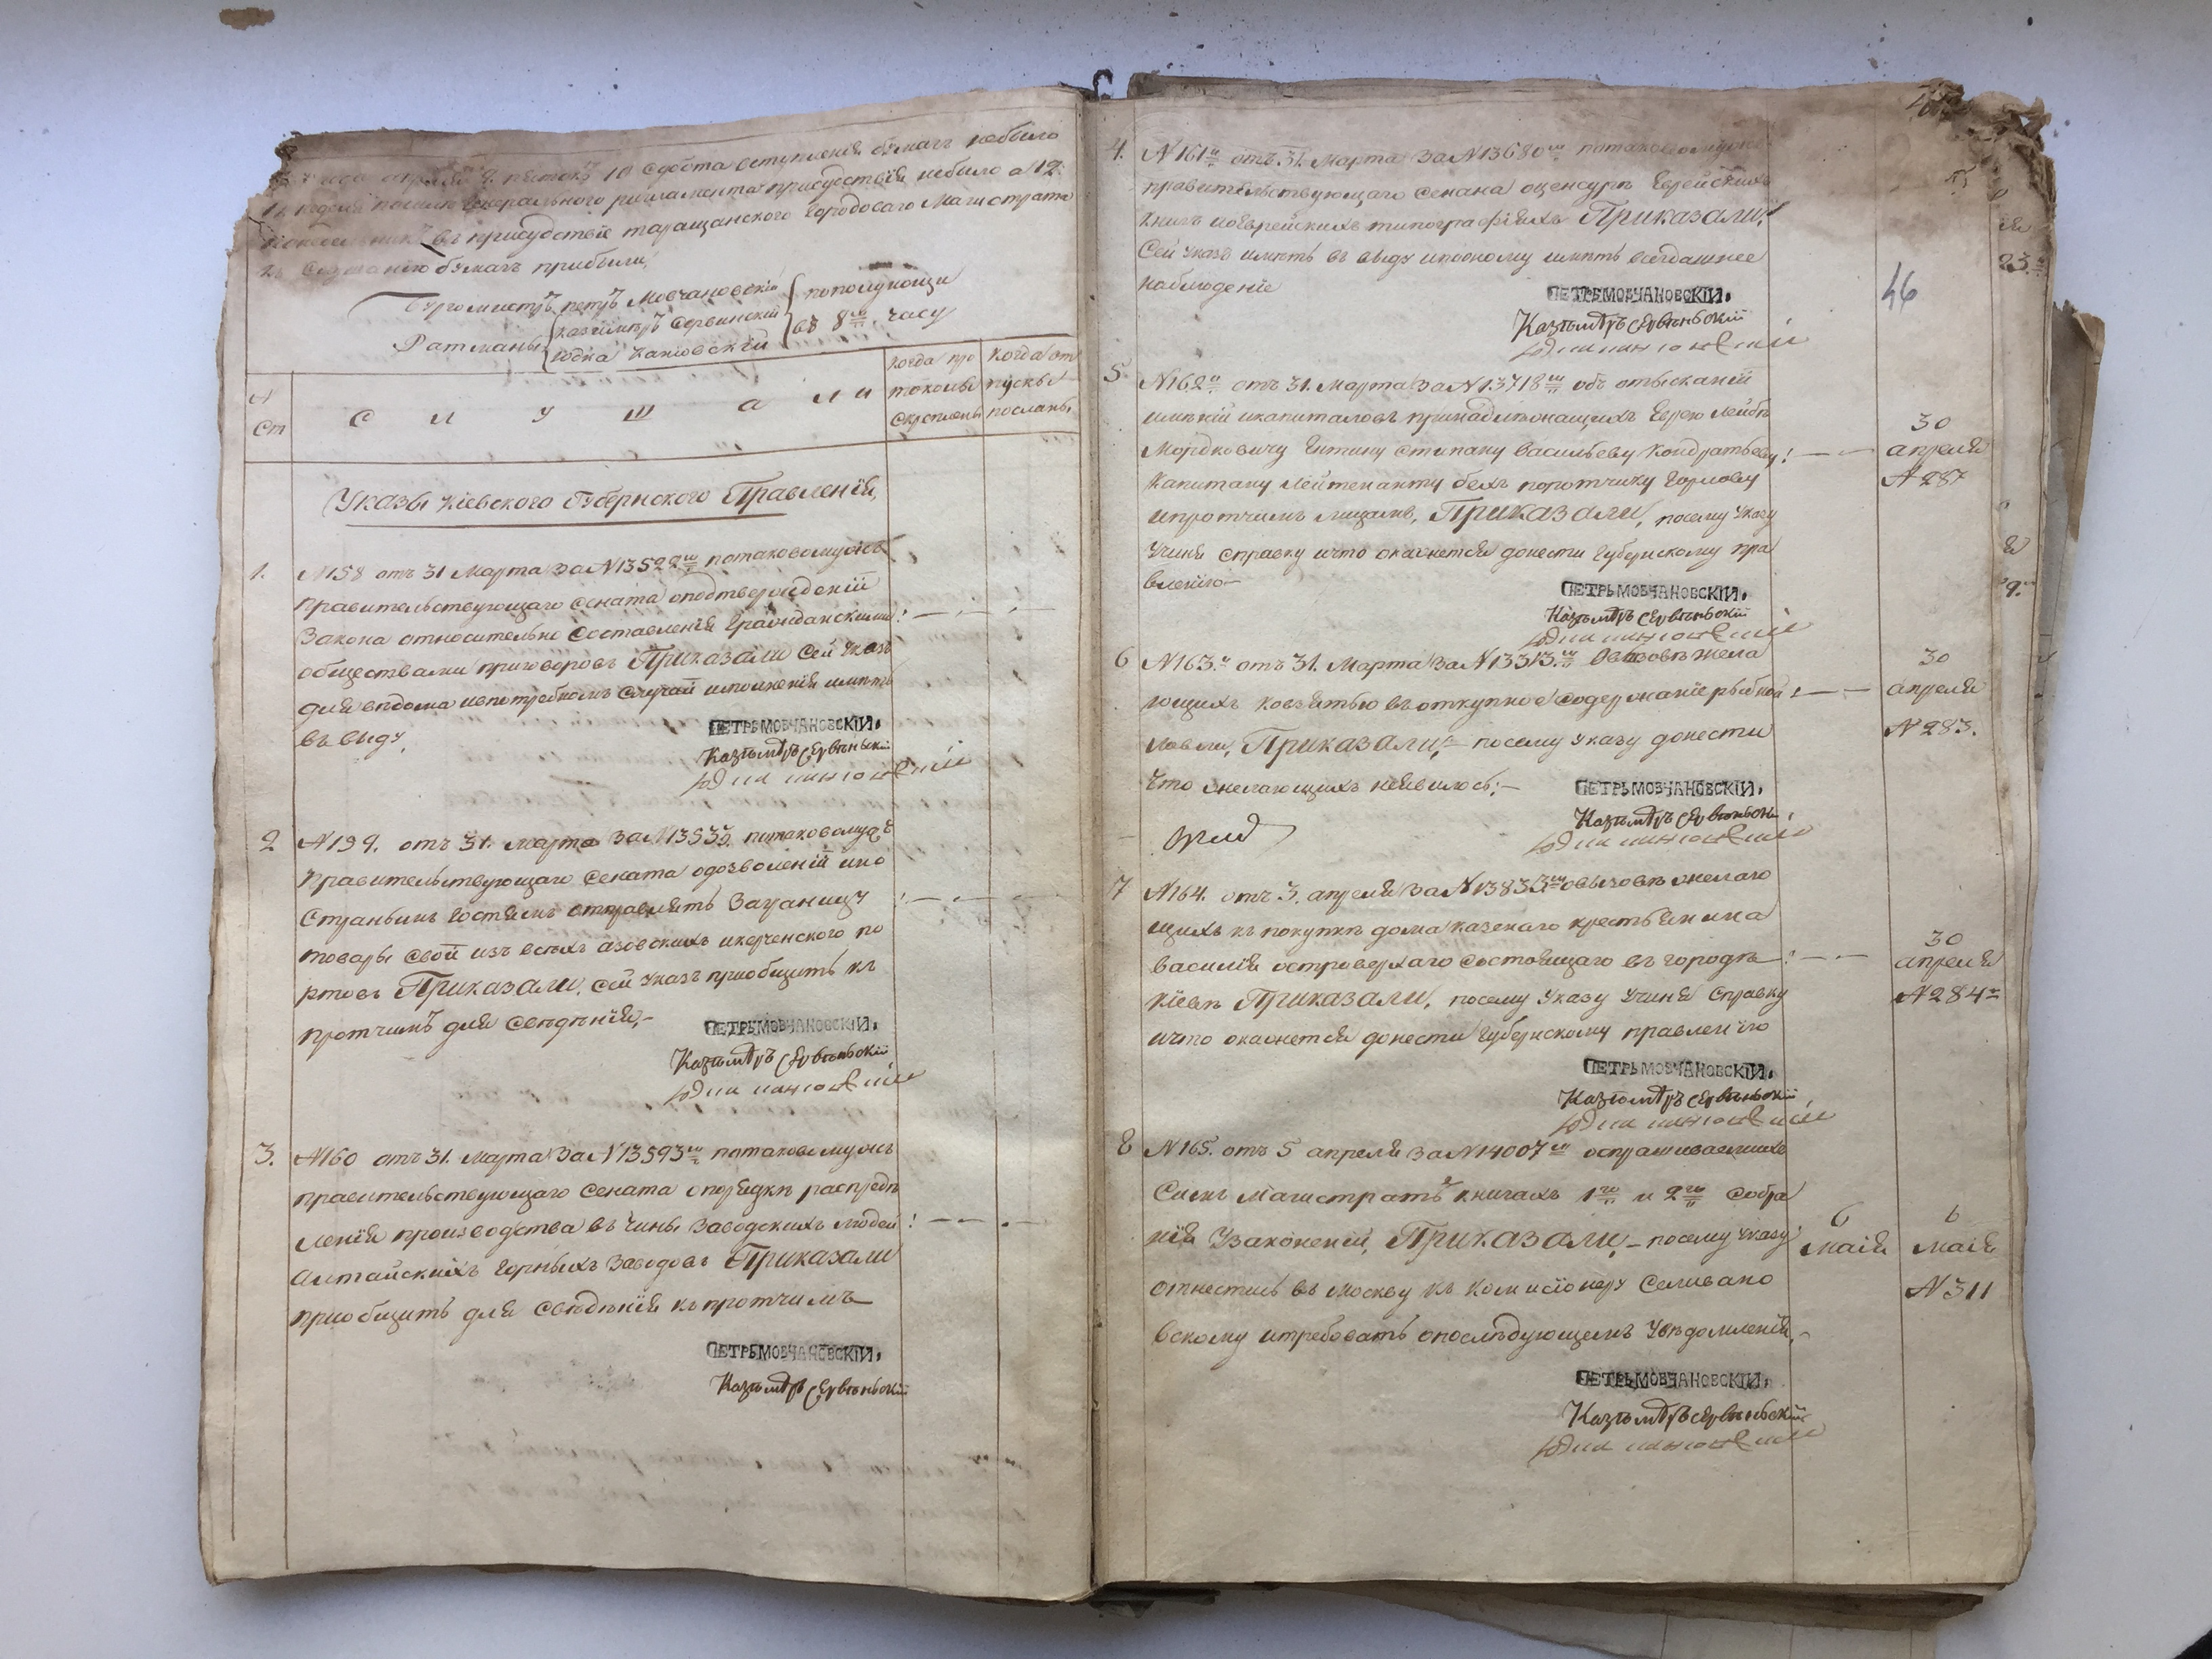 апреля 9. пятокъ 10 Субота вступленія бумагъ небыло
11 неделя посилѣ генерального регламента присудствія небыло а 12.
понедельникъ въ присудствіе таращанского Городоваго Магистрата
къ слушанію бумагъ прибыли,
Бургомистръ петръ Мовчановскій
Ратманы казимиръ Сервинскій
юдка Каневскій
пополуночи
въ 8м часу
№ Ст
С л у ш а л и
когда про токолы скреплены
когда от пуски посланы
Указы Кіевского Губернского Правленія,
1. №158 отъ 31 Марта За №13522м потаковомужъ
правительствующаго сената оподтвержденіи
Закона относительно Составленія Гражданскими
обществами приговоровъ Приказали Сей Указъ
для вѣдома ивпотребномъ Случаѣ исполненія имѣть
въ виду,
ПЕТРЪ МОВЧАНОВСКІЙ.
Казѣмѣръ Сервѣньскій
2 №159. отъ 31. марта За №13535. потаковомужъ
правительствующаго Сената одозволеніи ино
Страннымъ гостямъ отправлять Заграницу
товары Свои изъ всехъ азовскихъ икерченского по
ртовъ Приказали, Сей Указъ приобщить къ
протчимъ для Свѣдѣнія,-
ПЕТРЪ МОВЧАНОВСКІЙ.
Казѣмѣръ Сервѣньскій
3. №160 отъ 31. Марта За №13593м потаковомужъ
правительствующаго Сената опорядкѣ распредѣ
ленія производства въ Чины Заводскихъ людей
алтайскихъ Горныхъ Заводовъ Приказали
приобщить для Свѣдѣнія къпротчимъ
ПЕТРЪ МОВЧАНОВСКІЙ.
Казѣмѣръ Сервѣньскій
4. №161м отъ 31. Марта За №13680м потаковомужъ
правительствующаго Сената оценсурѣ Еврейскихъ
книгъ иоеврейскихъ типографіяхъ Приказали,
Сей Указъ имѣть въ виду ипооному имѣть всегдашнее
наблюденіе
46
ПЕТРЪ МОВЧАНОВСКІЙ.
Казѣмѣръ Сервѣньскій
5. №162м отъ 31. Марта За №13718м объ отысканіи
имѣній икапиталовъ принадлежащихъ Еврею Лейбѣ
Мордковичу Ентину Степану Васильеву Кондратьеву
Капитану Лейтенанту бехъ порутчику Горлову
ипротчимъ лицамъ, Приказали, посему Указу
Учиня Справку ичто окажется донести Губернскому пра
вленію-
30
апреля
№ 287
ПЕТРЪ МОВЧАНОВСКІЙ.
Казѣмѣръ Сервѣньскій
6 №163.м отъ 31. Марта За №13313.м Овызовѣ жела
ющихъ ковзятью въоткупное Содержаніе рыбной
Ловли, Приказали,- посему Указу донести
Что желающихъ неявилось;-
30
апреля
№ 283.
ПЕТРЪ МОВЧАНОВСКІЙ.
Казѣмѣръ Сервѣньскій
7 №164. отъ 3. апреля За №13833м овызовѣ желаю
щихъ къ покупкѣ дома казенаго крестьянина
Василія островерхаго Состоящаго въ городѣ
Кіевѣ Приказали, посему Указу Учиня Справку
ичто окажется донести Губернскому правленію
30
апреля
№ 284м
ПЕТРЪ МОВЧАНОВСКІЙ.
Казѣмѣръ Сервѣньскій
8 №165. отъ 5 апреля За №14007м оспрашиваемыхъ
Симъ Магистратъ книгахъ 1го и 2го Собра
нія Узаконеній, Приказали,- посему Указу
отнестись въ Москву къ Комисіонеру Селивано
вскому итребовать опослѣдующемъ Уведомленія,-
6
маія
6
маія
№ 311
ПЕТРЪ МОВЧАНОВСКІЙ.
Казѣмѣръ Сервѣньскій